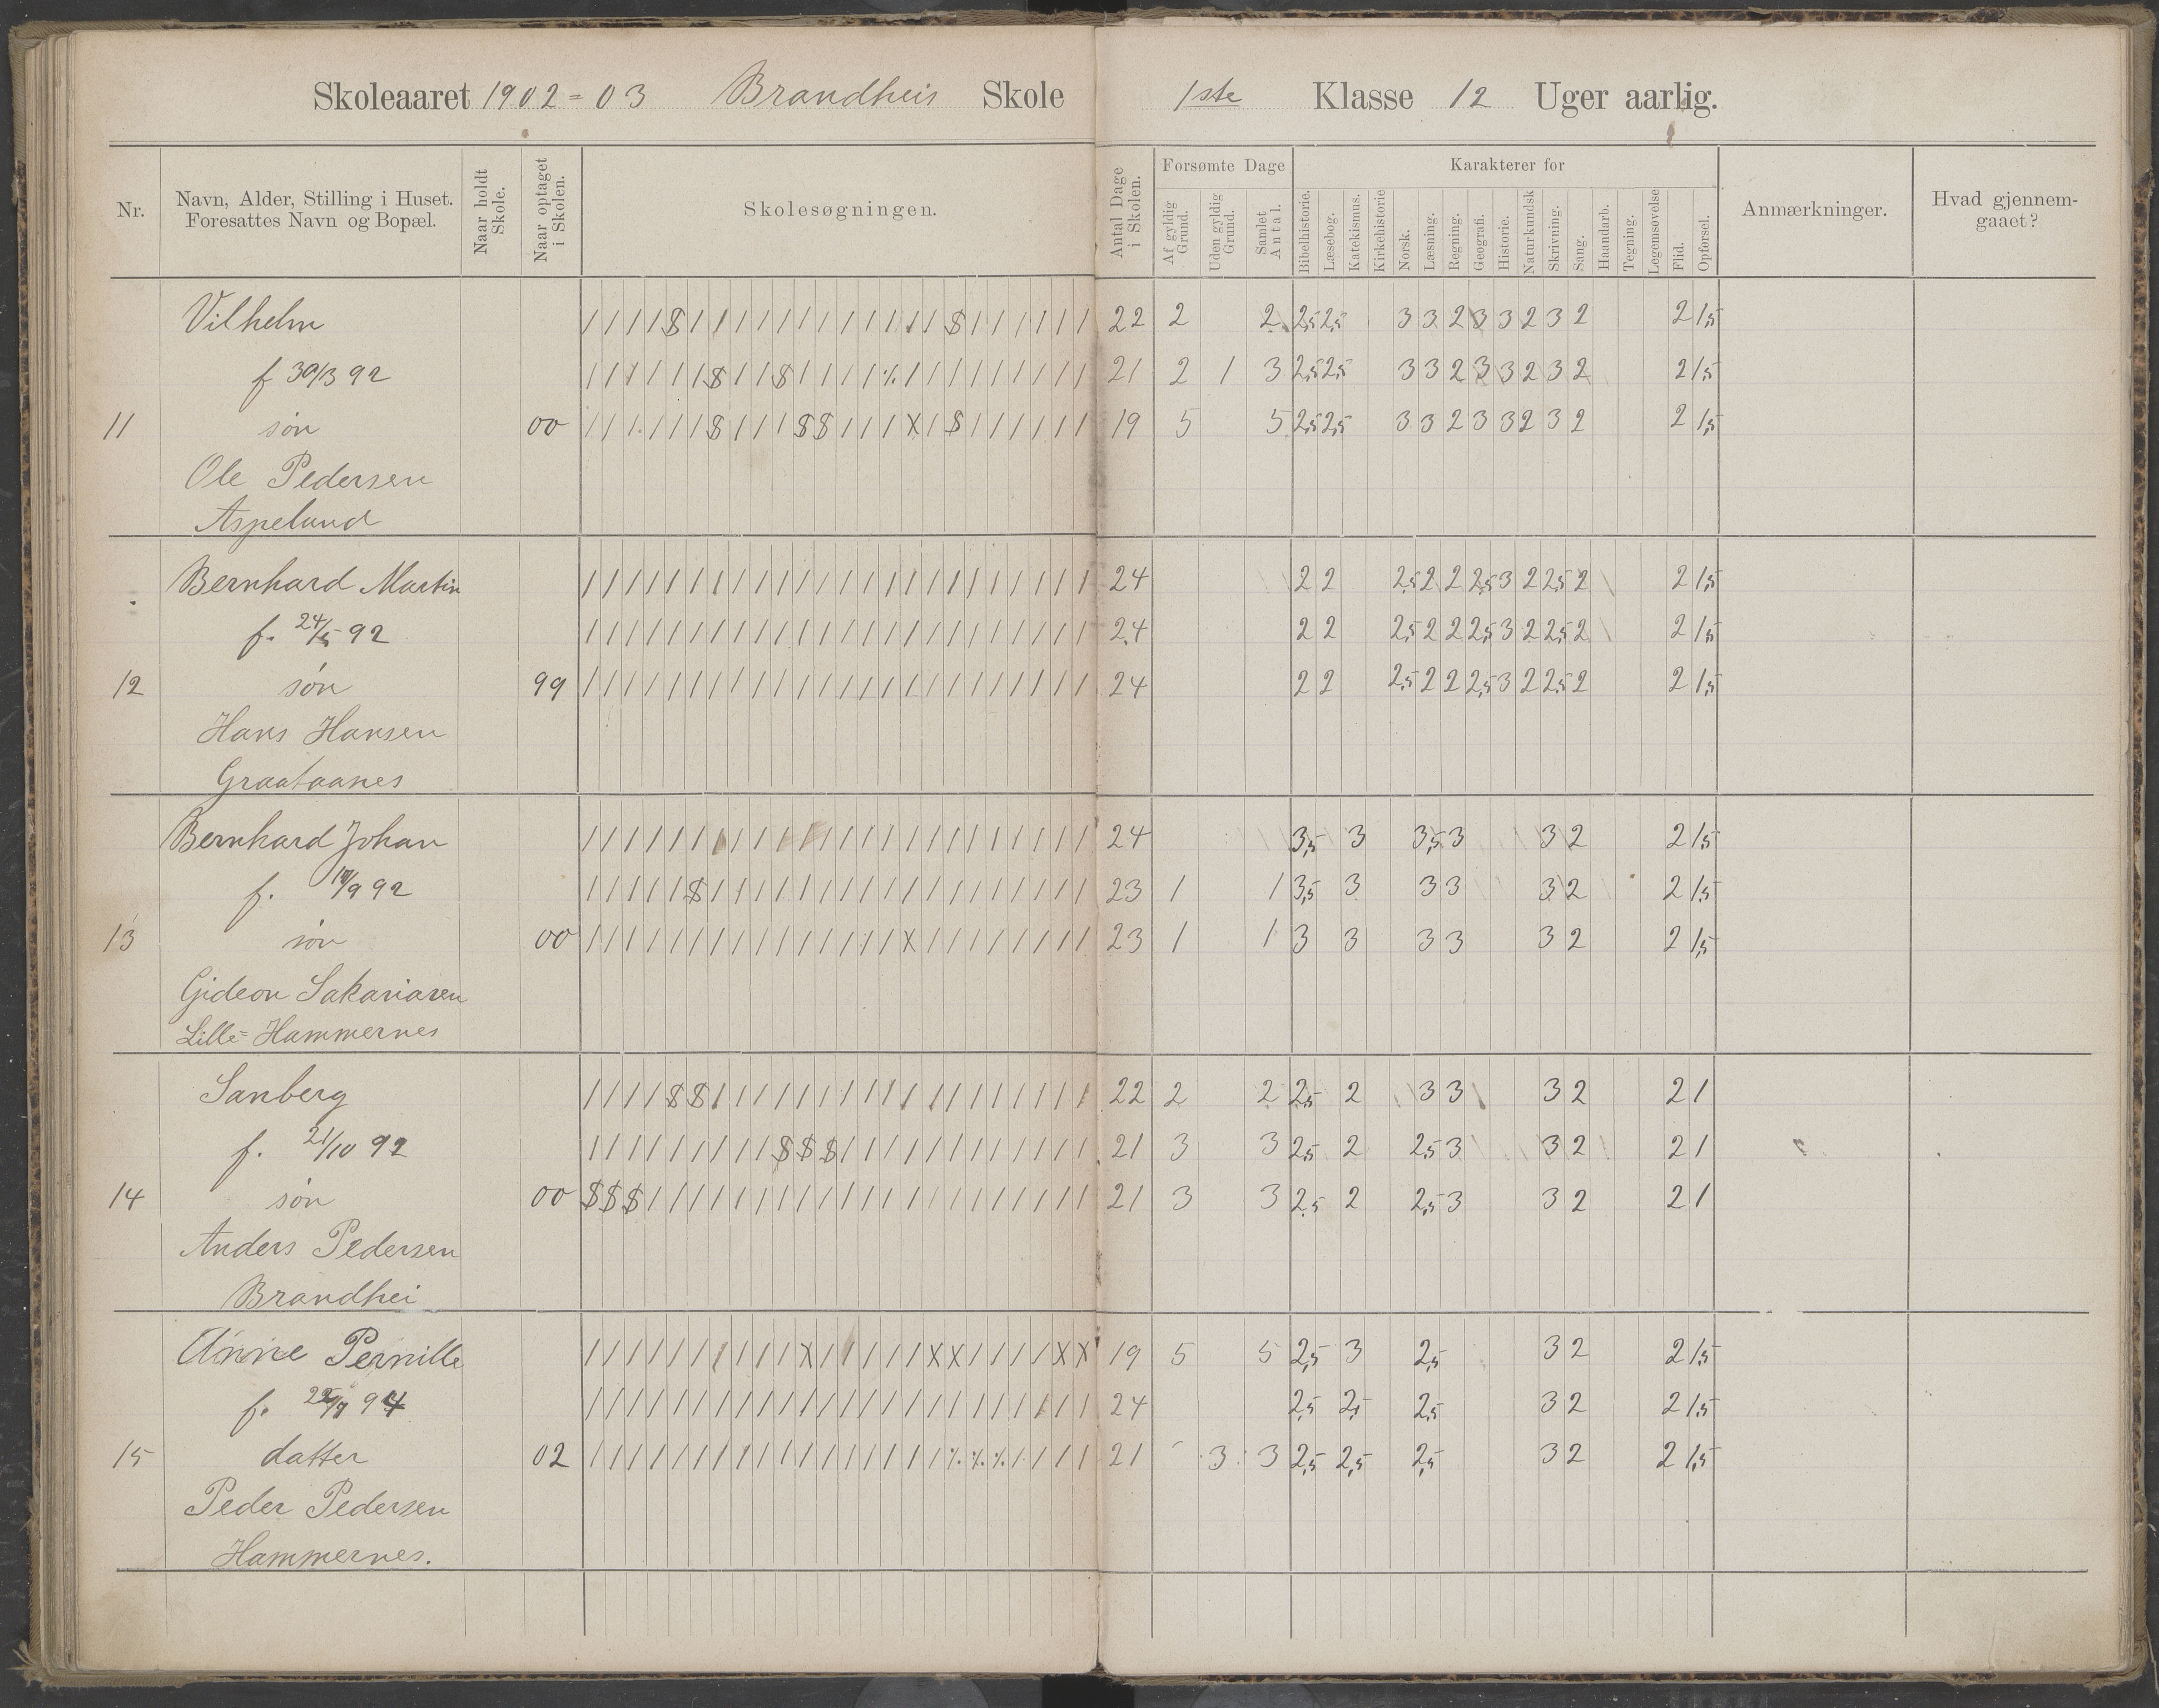 Skoleaaret 1902=03 Brandheis Skole 1ste Klasse 12 Uger aarlig.
Nr. Navn, Alder, Stilling i Huset. Foresattes Navn og Bopæl. Naar holdt Skole. Naar optaget i Skolen. Skolesøgningen. Antal Dage i Skolen. Forsømte Dage Af gyldig Grund. Uden gyldig Grund. Samlet Antal. Karakterer for Bibelhistorie. Læsebog. Katekismus. Kirkehistorie Norsk. Læsning. Regning. Geografi. Historie. Naturkundsk Skrivning. Sang. Haandarb. Tegning. Legemsøvelse Flid. Opførsel. Anmærkninger. Hvad gjennemgaaet?
Vilhelm / / / / $ / / / / / / / / / / / / $ / / / / / / 22 2 2 2,5 2,5 3 3 2 3 3 2 3 2 2 1,5
f 30/3 92 / / / / / / $ / / $ / / / / ٪ / / / / / / / / / 21 2 1 3 2,5 2,5 3 3 2 3 3 2 3 2 2 1,5
11 søn 00 / / / / / / $ / / / $ $ / / / X / $ / / / / / / 19 5 5 2,5 2,5 3 3 2 3 3 2 3 2 2 1,5
Ole Pedersen
Aspelund
Bernhard Martin / / / / / / / / / / / / / / / / / / / / / / / / 24 2 2 2,5 2 2 2,5 3 2 2,5 2 2 1,5
f. 24/5 92 / / / / / / / / / / / / / / / / / / / / / / / / 24 2 2 2,5 2 2 2,5 3 2 2,5 2 2 1,5
12 søn 99 / / / / / / / / / / / / / / / / / / / / / / / / 24 2 2 2,5 2 2 2,5 3 2 2,5 2 2 1,5
Hans Hansen
Graataanes
Bernhard Johan / / / / / / / / / / / / / / / / / / / / / / / / 24 3,5 3 3,5 3 3 2 2 1,5
f. 92 / / / / / $ / / / / / / / / / / / / / / / / / / 23 1 1 3,5 3 3 3 3 2 2 1,5
13 søn 00 / / / / / / / / / / / / / / / X / / / / / / / / 23 1 1 3 3 3 3 3 2 2 1,5
Gideon Sakariasen
Lille=Hammernes
Sanberg / / / / $ $ / / / / / / / / / / / / / / / / / / 22 2 2 2,5 2 3 3 3 2 2 1
f. 21/10 92 / / / / / / / / / $ $ $ / / / / / / / / / / / / 21 3 3 2,5 2 2,5 3 3 2 2 1
14 søn 00 $ $ $ / / / / / / / / / / / / / / / / / / / / / 21 3 3 2,5 2 2,5 3 3 2 2 1
Anders Pedersen
Brandhei
Anne Pernille / / / / / / / / / / X / / / / / X X / / / / X X 19 5 5 2,5 3 2,5 3 2 2 1,5
f. 94 / / / / / / / / / / / / / / / / / / / / / / / / 24 2,5 2,5 2,5 3 2 2 1,5
15 datter 02 / / / / / / / / / / / / / / / / / ٪ ٪ ٪ / / / / 21 3 3 2,5 2,5 2,5 3 2 2 1,5
Peder Pedersen
Hammernes.